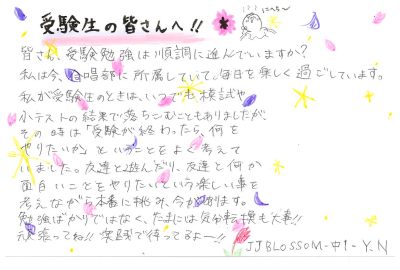 受験生の皆さんへ!!
にこっ〜
皆さん、受験勉強は順調に進んでいますか?
私は今、合唱部に所属していて、毎日を楽しく過ごしています。
私が受験生のときは、いつでも模試や
小テストの結果で落ちこむこともありましたが、
その時は「受験が終わったら、何を
やりたいか」ということをよく考えて
いました。友達と遊んだり、友達と何か
面白いことをやりたいという楽しい事を
考えながら本番に挑み、今があります。
勉強ばかりではなく、たまには気分転換も大事!!
頑張ってね!! 実践で待ってるよー!!
JJBLOSSOM-中1-Y.N